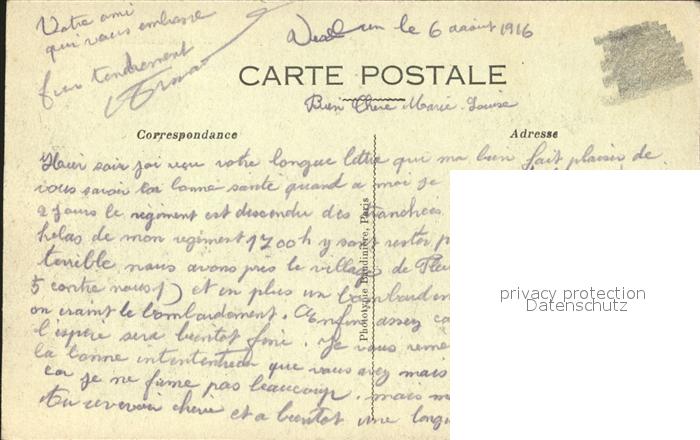 Votre ami
qui vous embrasse
tendrement
un le 6 aaout 1916
CARTE POSTALE
Bien Chère Marie-Louise
Correspondance
Adresse
Hier soir jai recu votre longue lettre qui ma bien fait plaisir de
vous savoir bonne santé quand a moi je
2 jours le régiment est descendu des tranchées
helas de mon regiment 1700 h y sont restés
terrible nous avons pris le village de Fleu
5 contre nous 1) et en plus un bombardem
on craint le bombardement. Enfin assez
l'espere sera bientot fini. Je vous reme
la bonne intentention que vous avez mais
car je ne fume pas beaucoup. mais
Au revevoir cherie et a bientot une long
Phototypie Baudinière, Paris
privacy protection
Datenschutz